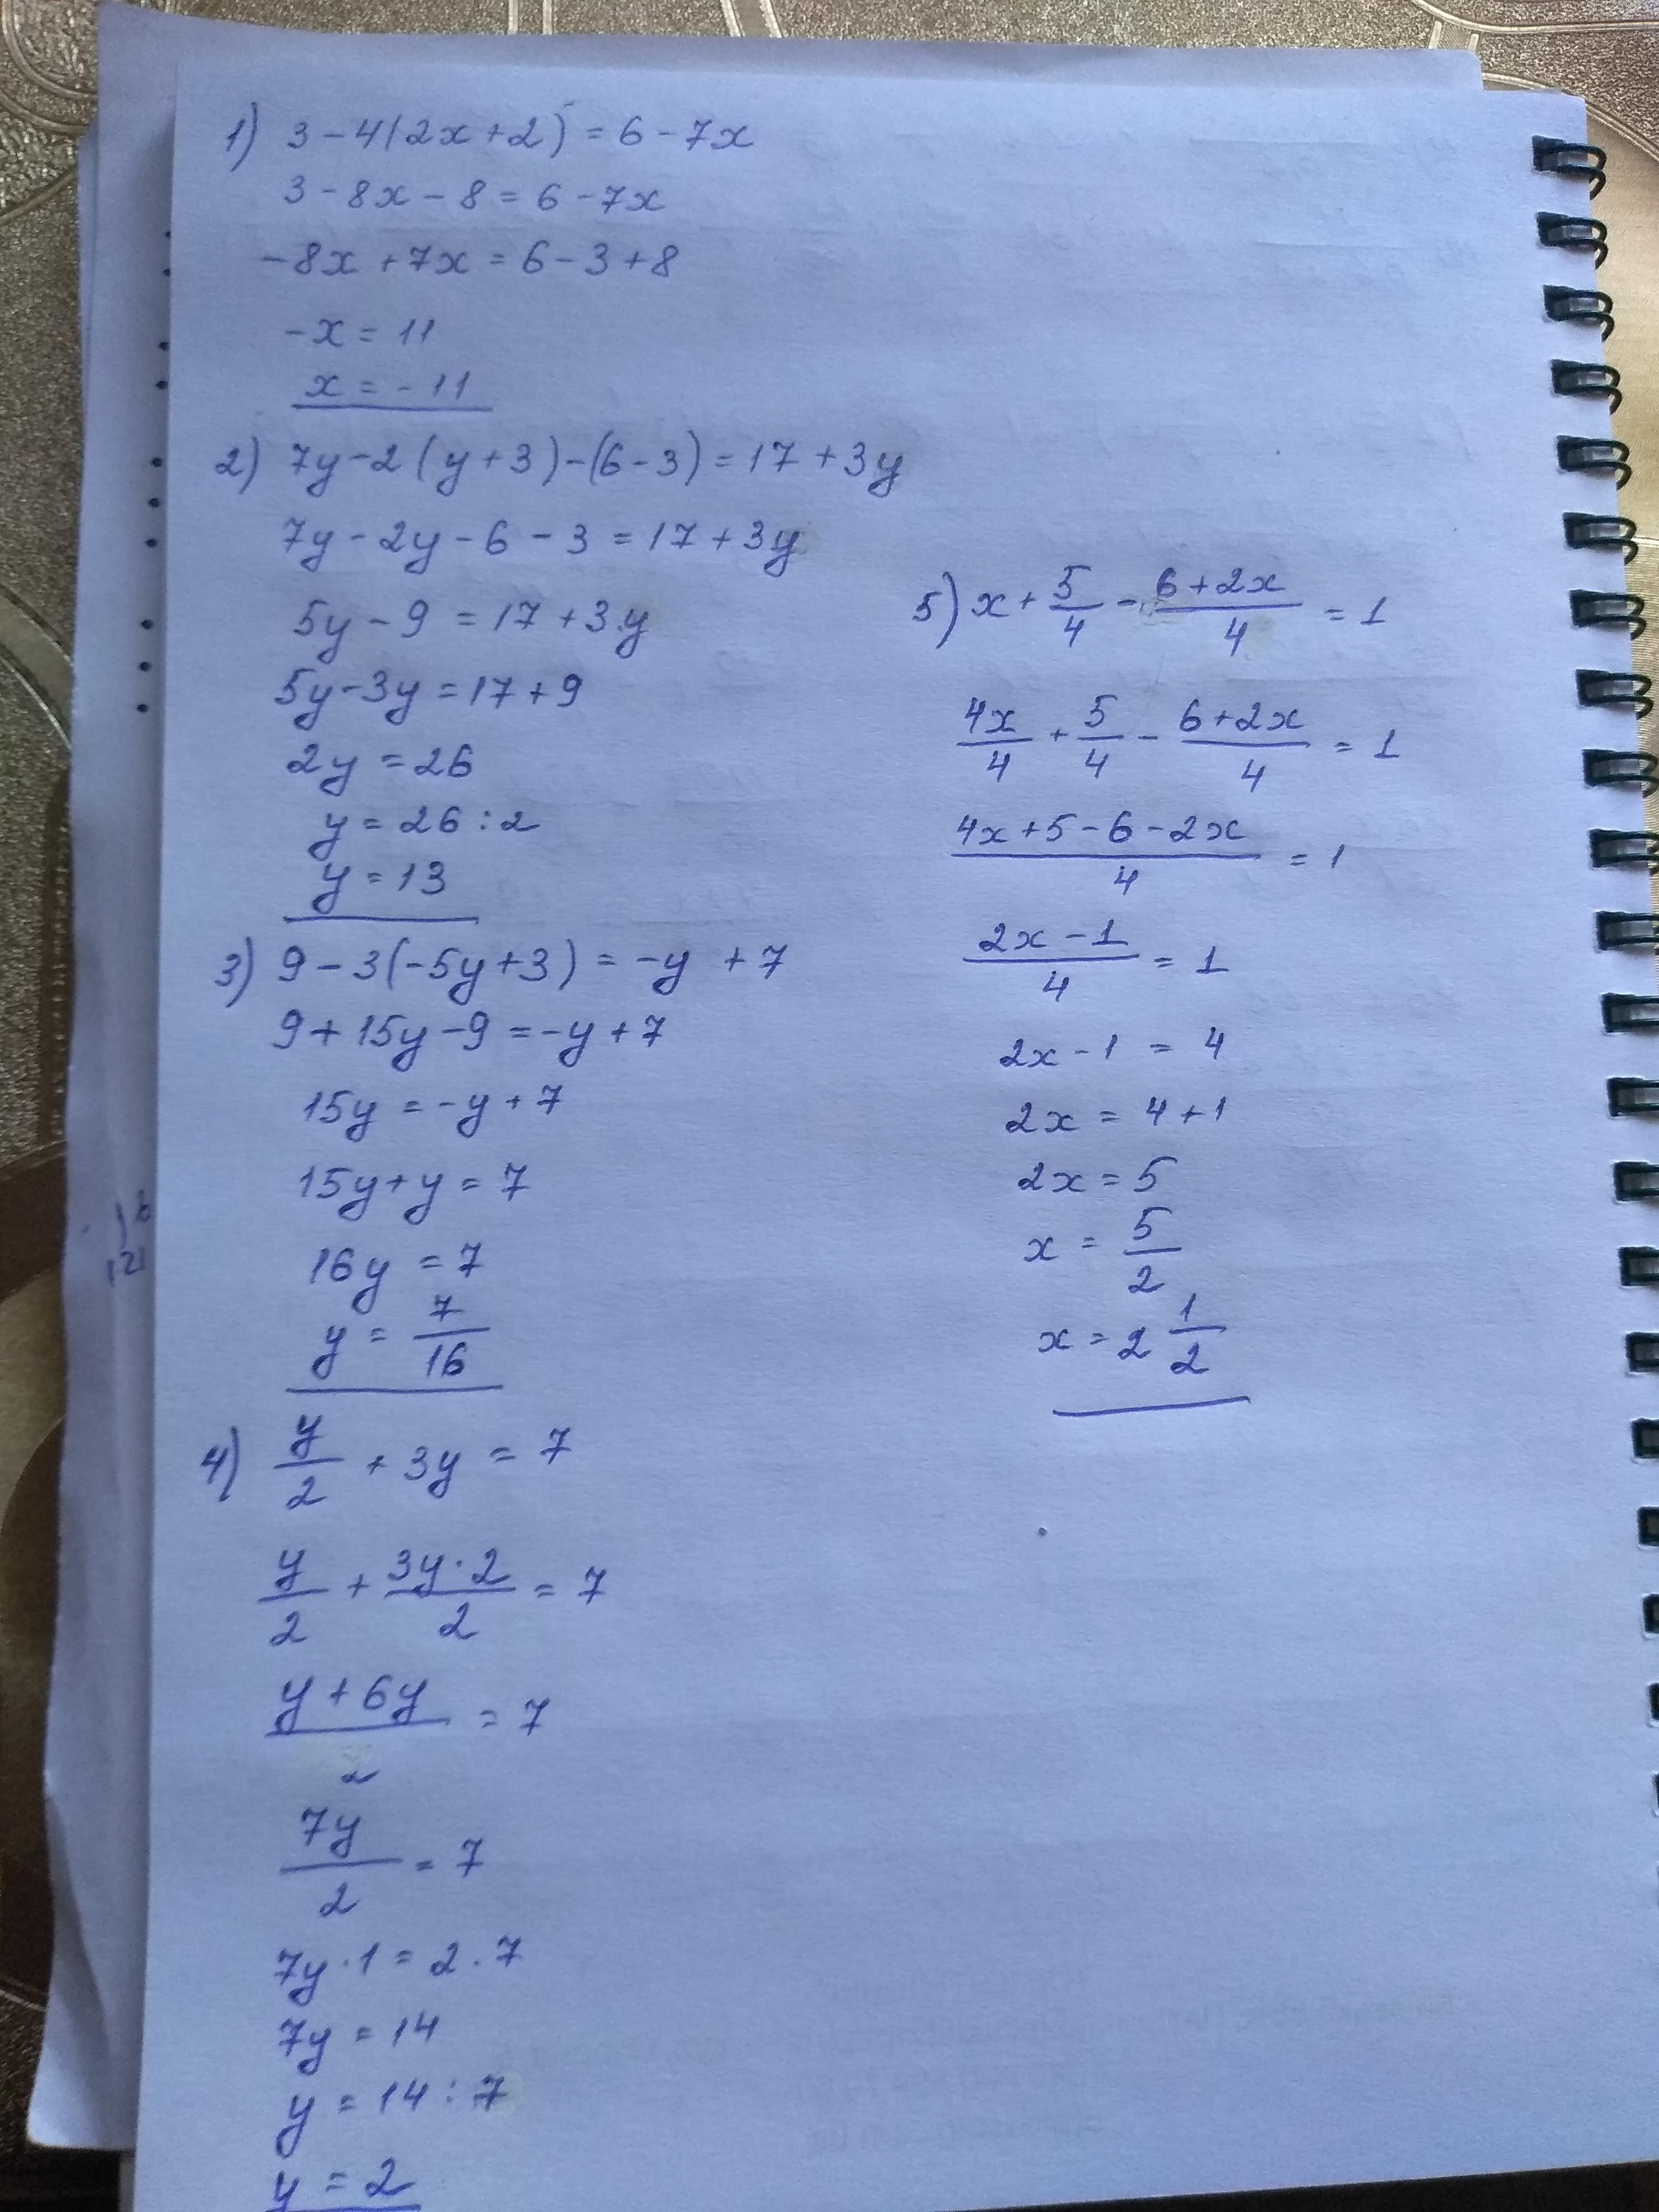 1) 3 - 4(2x + 2) = 6 - 7x
3 - 8x - 8 = 6 - 7x
-8x + 7x = 6 - 3 + 8
-x = 11
x = -11
2) 7y - 2(y + 3) - (6 - 3) = 17 + 3y
7y - 2y - 6 - 3 = 17 + 3y
5y - 9 = 17 + 3y
5y - 3y = 17 + 9
2y = 26
y = 26 : 2
y = 13
3) 9 - 3(-5y + 3) = -y + 7
9 + 15y - 9 = -y + 7
15y = -y + 7
15y + y = 7
16y = 7
y = 7/16
4) y/2 + 3y = 7
y/2 + 3y·2/2 = 7
y + 6y/2 = 7
7y/2 = 7
7y · 1 = 2 · 7
7y = 14
y = 14 : 7
y = 2
5) x + 5/4 - 6 + 2x/4 = 1
4x/4 + 5/4 - 6 + 2x/4 = 1
4x + 5 - 6 - 2x/4 = 1
2x - 1/4 = 1
2x - 1 = 4
2x = 4 + 1
2x = 5
x = 5/2
x = 2 1/2